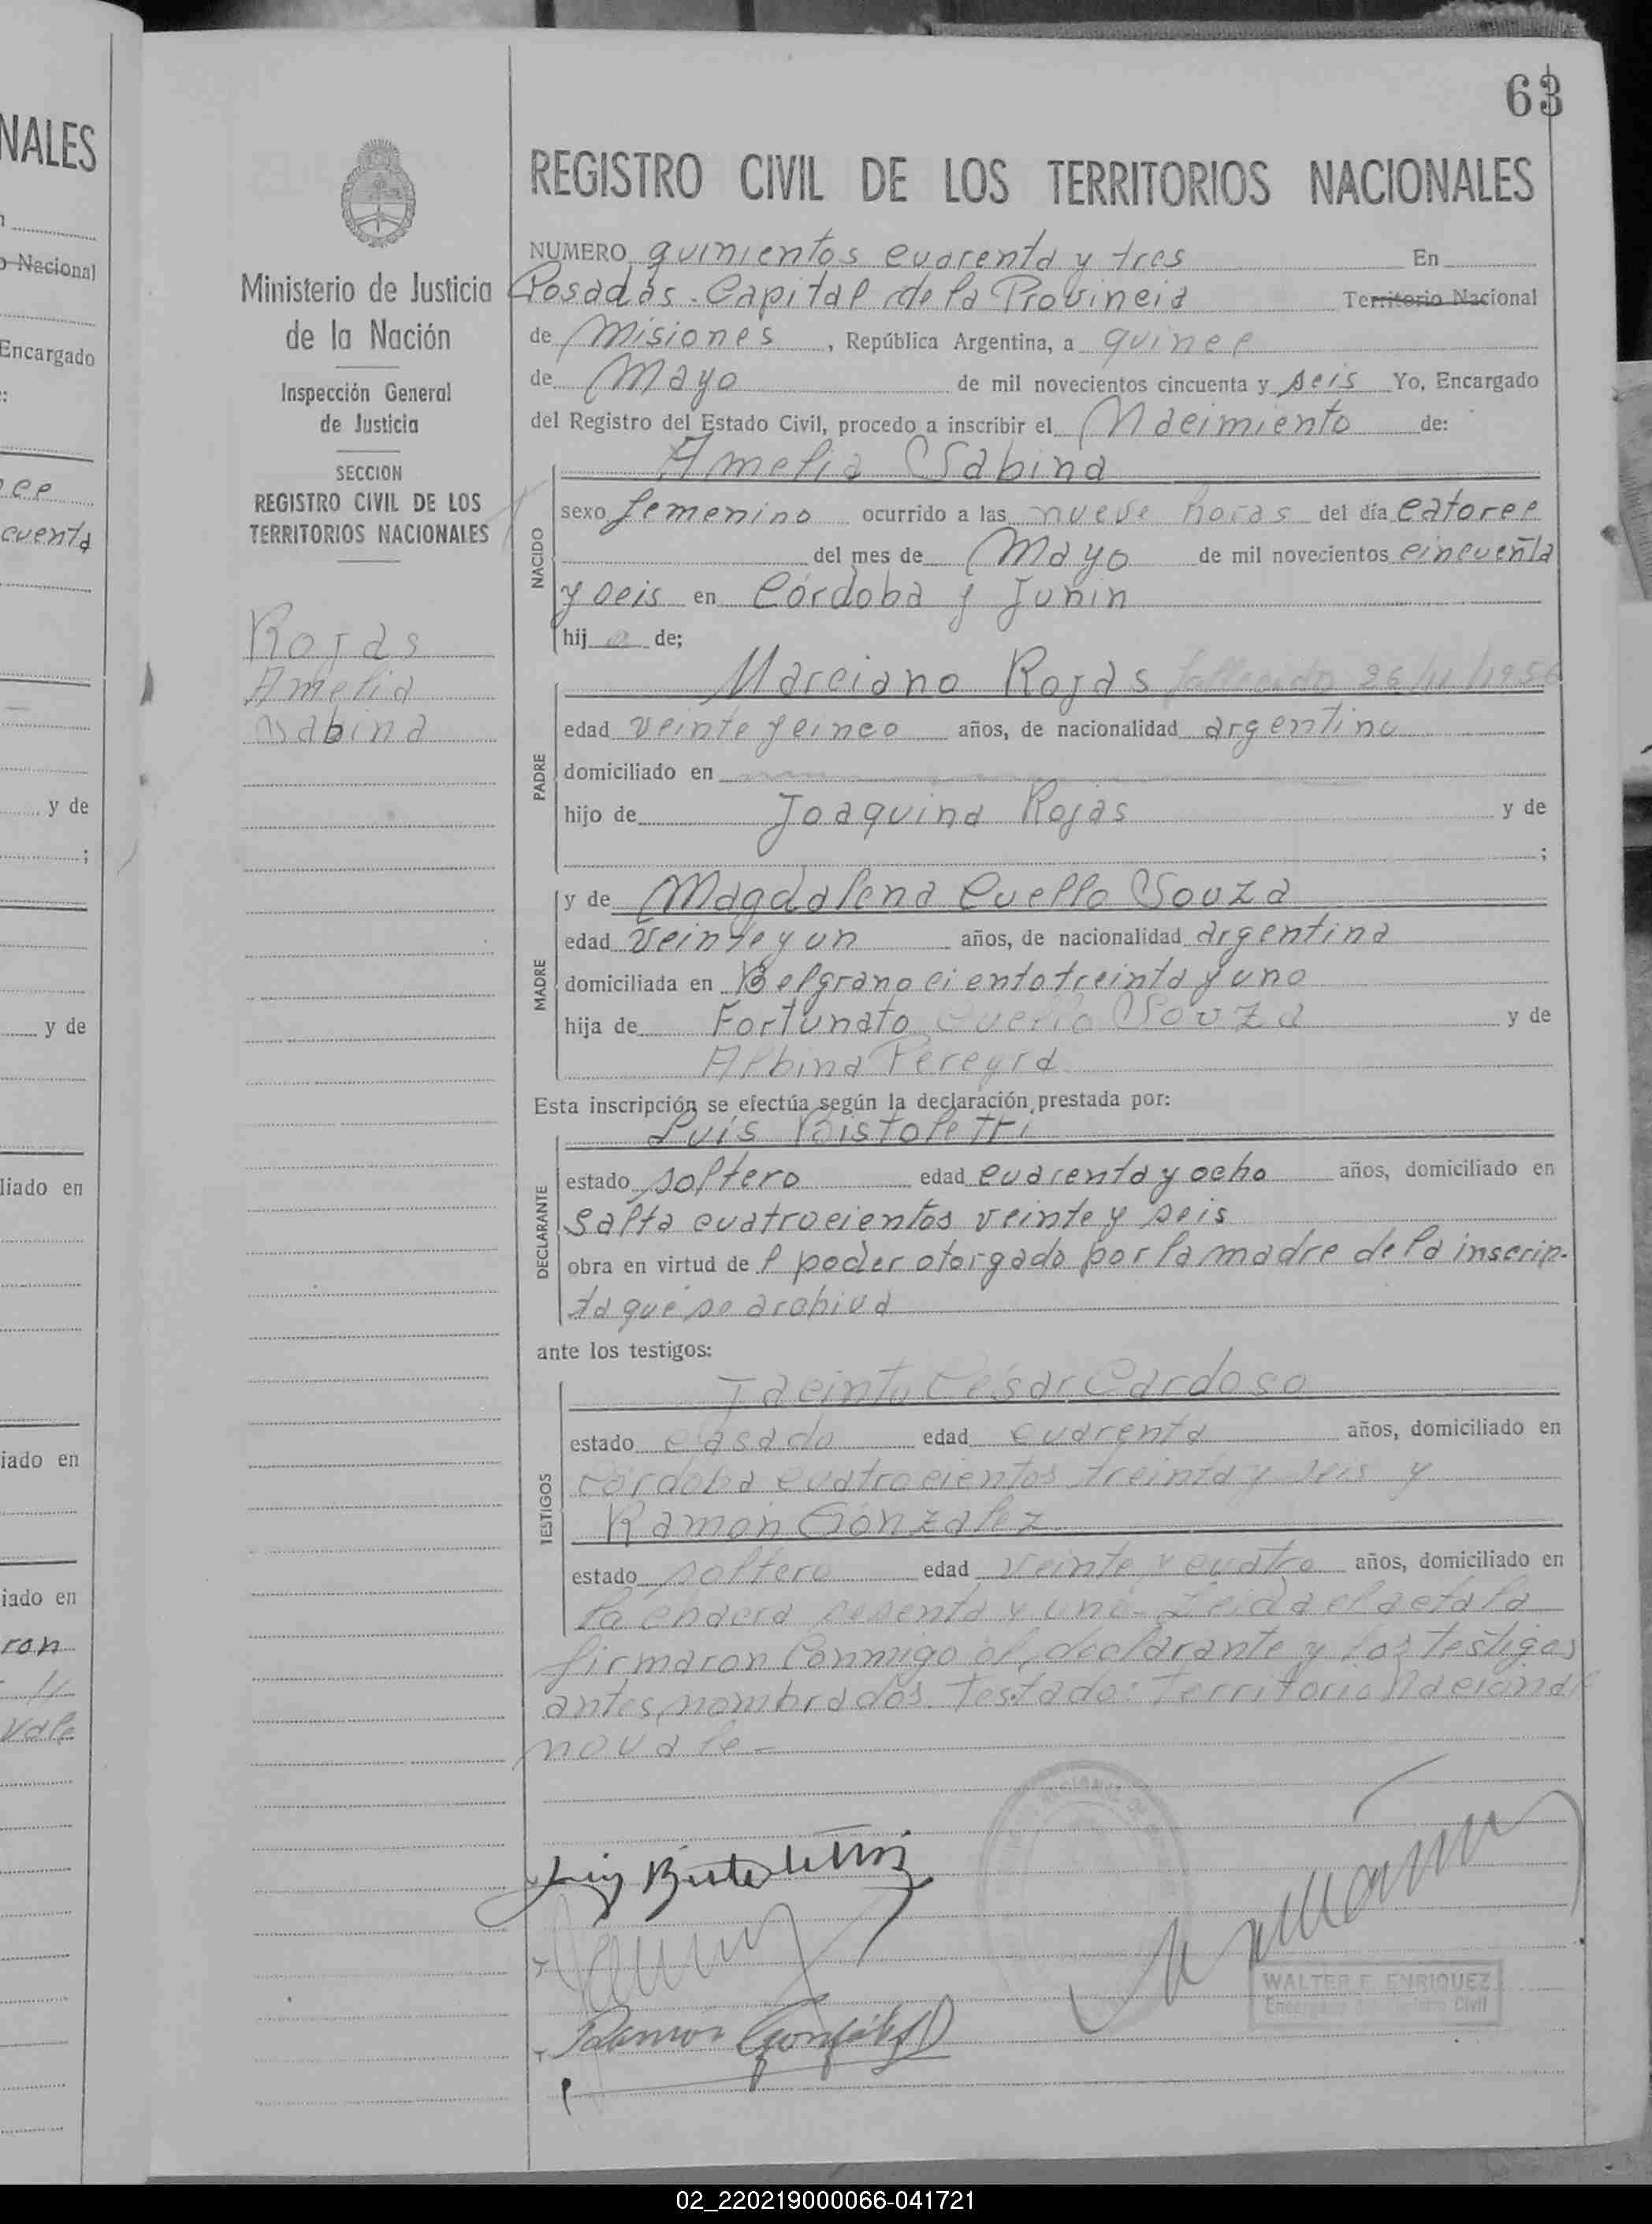 63
NALES
Nacional
Encargado
cuenta
y de
;
y de
liado en
iado en
iado en
ron
vale
Ministerio de Justicia
de la Nación
Inspección General
de Justicia
SECCION
REGISTRO CIVIL DE LOS
TERRITORIOS NACIONALES
Rojas
Amelia
Sabina
REGISTRO CIVIL DE LOS TERRITORIOS NACIONALES
NUMERO quinientos cuarenta y tres En
Posadas. Capital de la Provincia Territorio Nacional
de Misiones, República Argentina, a quince
de Mayo de mil novecientos cincuenta y seis Yo, Encargado
del Registro del Estado Civil, procedo a inscribir el Nacimiento de:
NACIDO
Amelia Sabina
sexo femenino ocurrido a las nueve horas del día catorce
del mes de Mayo de mil novecientos cincuenta
y seis en Córdoba y Junin
hija de;
PADRE
Marciano Rojas fallecido
edad veinte y cinco años, de nacionalidad argentino
domiciliado en
hijo de Joaquina Rojas y de
;
MADRE
y de Magdalena Cuello Souza
edad veinte y un años, de nacionalidad argentina
domiciliada en Belgrano ciento treinta y uno
hija de Fortunato Cuello Souza y de
Albina Pereyra
Esta inscripción se efectúa según la declaración prestada por:
DECLARANTE
Luis Bistoletti
estado soltero edad cuarenta y ocho años, domiciliado en
Salta cuatrocientos veinte y seis
obra en virtud de l poder otorgado por la madre de la inscrip-
ta que se archiva
ante los testigos:
TESTIGOS
Jacinto César Cardoso
estado casado edad cuarenta años, domiciliado en
Córdoba cuatrocientos treinta y seis y
Ramón González
estado soltero edad veinte y cuatro años, domiciliado en
La chacra sesenta y uno. Leida el acta la
firmaron conmigo el declarante y los testigos
antes nombrados. Testado: Territorio Nacional
no vale-
Ramon González
WALTER F. ENRIQUEZ
Encargado del Registro Civil
02_220219000066-041721